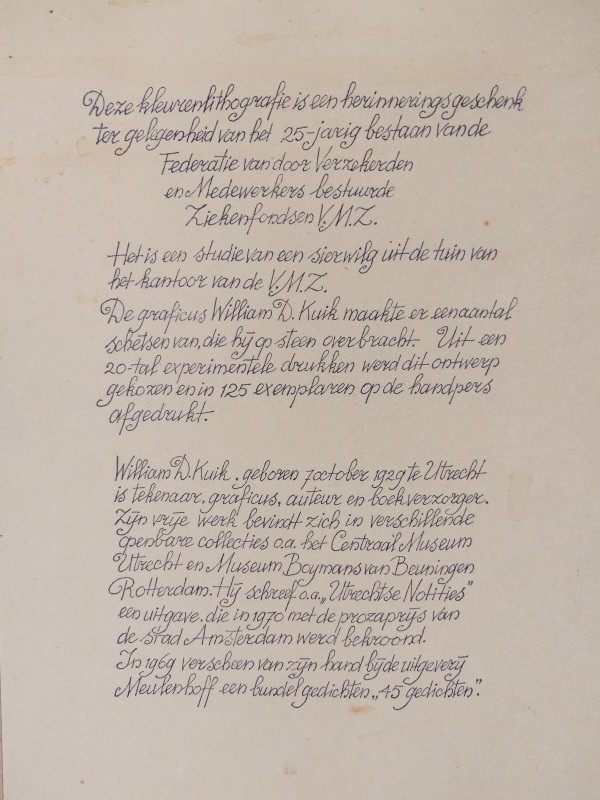 Deze kleurenlithografie is een herinneringsgeschenk
ter gelegenheid van het 25-jarig bestaan van de
Federatie van door Verzekerden
en Medewerkers bestuurde
Ziekenfondsen V.M.Z.
Het is een studie van een sierwilg uit de tuin van
het kantoor van de V.M.Z.
De graficus William D. Kuik maakte er een aantal
schetsen van, die hij op steen overbracht. Uit een
20-tal experimentele drukken werd dit ontwerp
gekozen en in 125 exemplaren op de handpers
afgedrukt.
William D. Kuik, geboren 7 october 1929 te Utrecht
is tekenaar, graficus, auteur en boekverzorger.
Zijn vrije werk bevindt zich in verschillende
openbare collecties o.a. het Centraal Museum
Utrecht en Museum Boymans van Beuningen
Rotterdam. Hij schreef o.a. „Utrechtse Notities”
een uitgave, die in 1970 met de prozaprijs van
de stad Amsterdam werd bekroond.
In 1969 verscheen van zijn hand bij de uitgeverij
Meulenhoff een bundel gedichten „45 gedichten”.